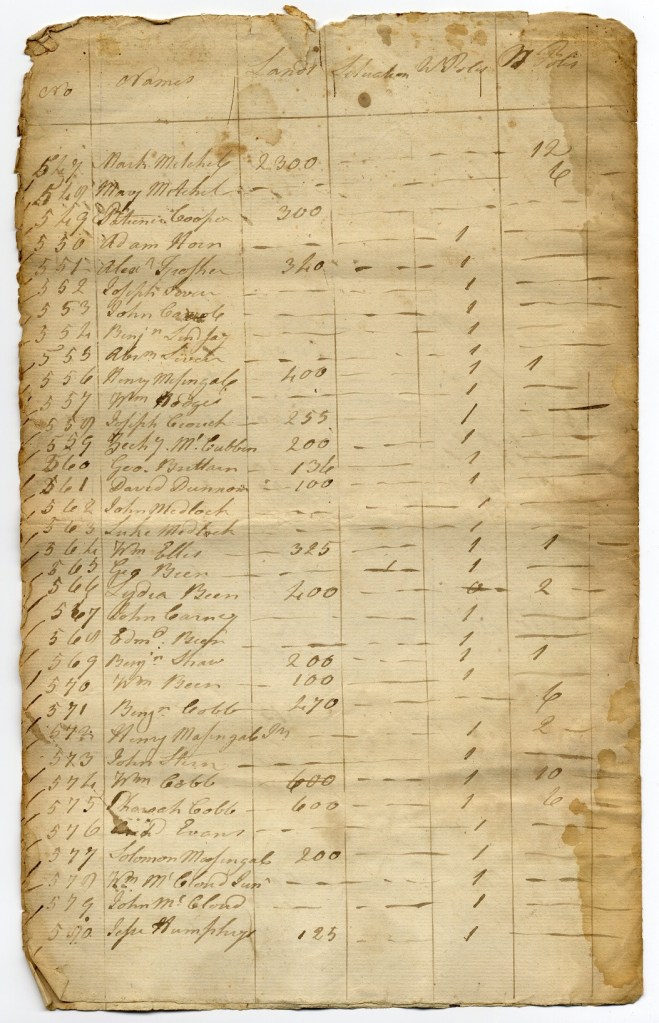 No Names Lands Situation W Poles N Poles
547 Mark Mitchel 2300 — — 12
548 Mary Mitchel — — — — 6
549 Cooper 300 — — —
550 Adam Horn — — — 1 —
551 Alexr 340 — — 1 —
552 Joseph — — — 1 —
553 John — — — 1 —
554 Benjn Lindsay — — — 1 —
555 Abrm — — — 1 —
556 Henry Massingale 400 — — 1 1
557 Wm Hodges — — — 1 —
558 Joseph Crouch — 255 — — 1 —
559 Zechy McCubbin 200 — — 1 —
560 Geo. Brittain — 136 — — 1 —
561 David — 100 — — 1 —
562 John Medlock — — — 1 —
563 Luke Medlock — — — 1 —
564 Wm Ellis — 325 — — 1 1
565 Geo Been — — 1 — 1 —
566 Lydia Been 400 — — 0 — 2 —
567 John Carney — — — 1 —
568 Edmd. Been — — — 1 —
569 Benjn Shaw 200 — — 1 1
570 Wm Been — 100 — — 1 —
571 Benjn Cobb — 270 — — — 6
572 Henry Massingale Jr — — 1 2 —
573 John — — — 1 —
574 Wm Cobb — 600 — — 1 10
575 Pharaoh Cobb — 600 — — 1 6
576 Evans — — — 1 —
577 Solomon Massingale 200 — — 1 —
578 Wm McCloud Junr — — — 1 —
579 John McCloud — — — 1 —
580 Jesse Humphrys 125 — — 1 —